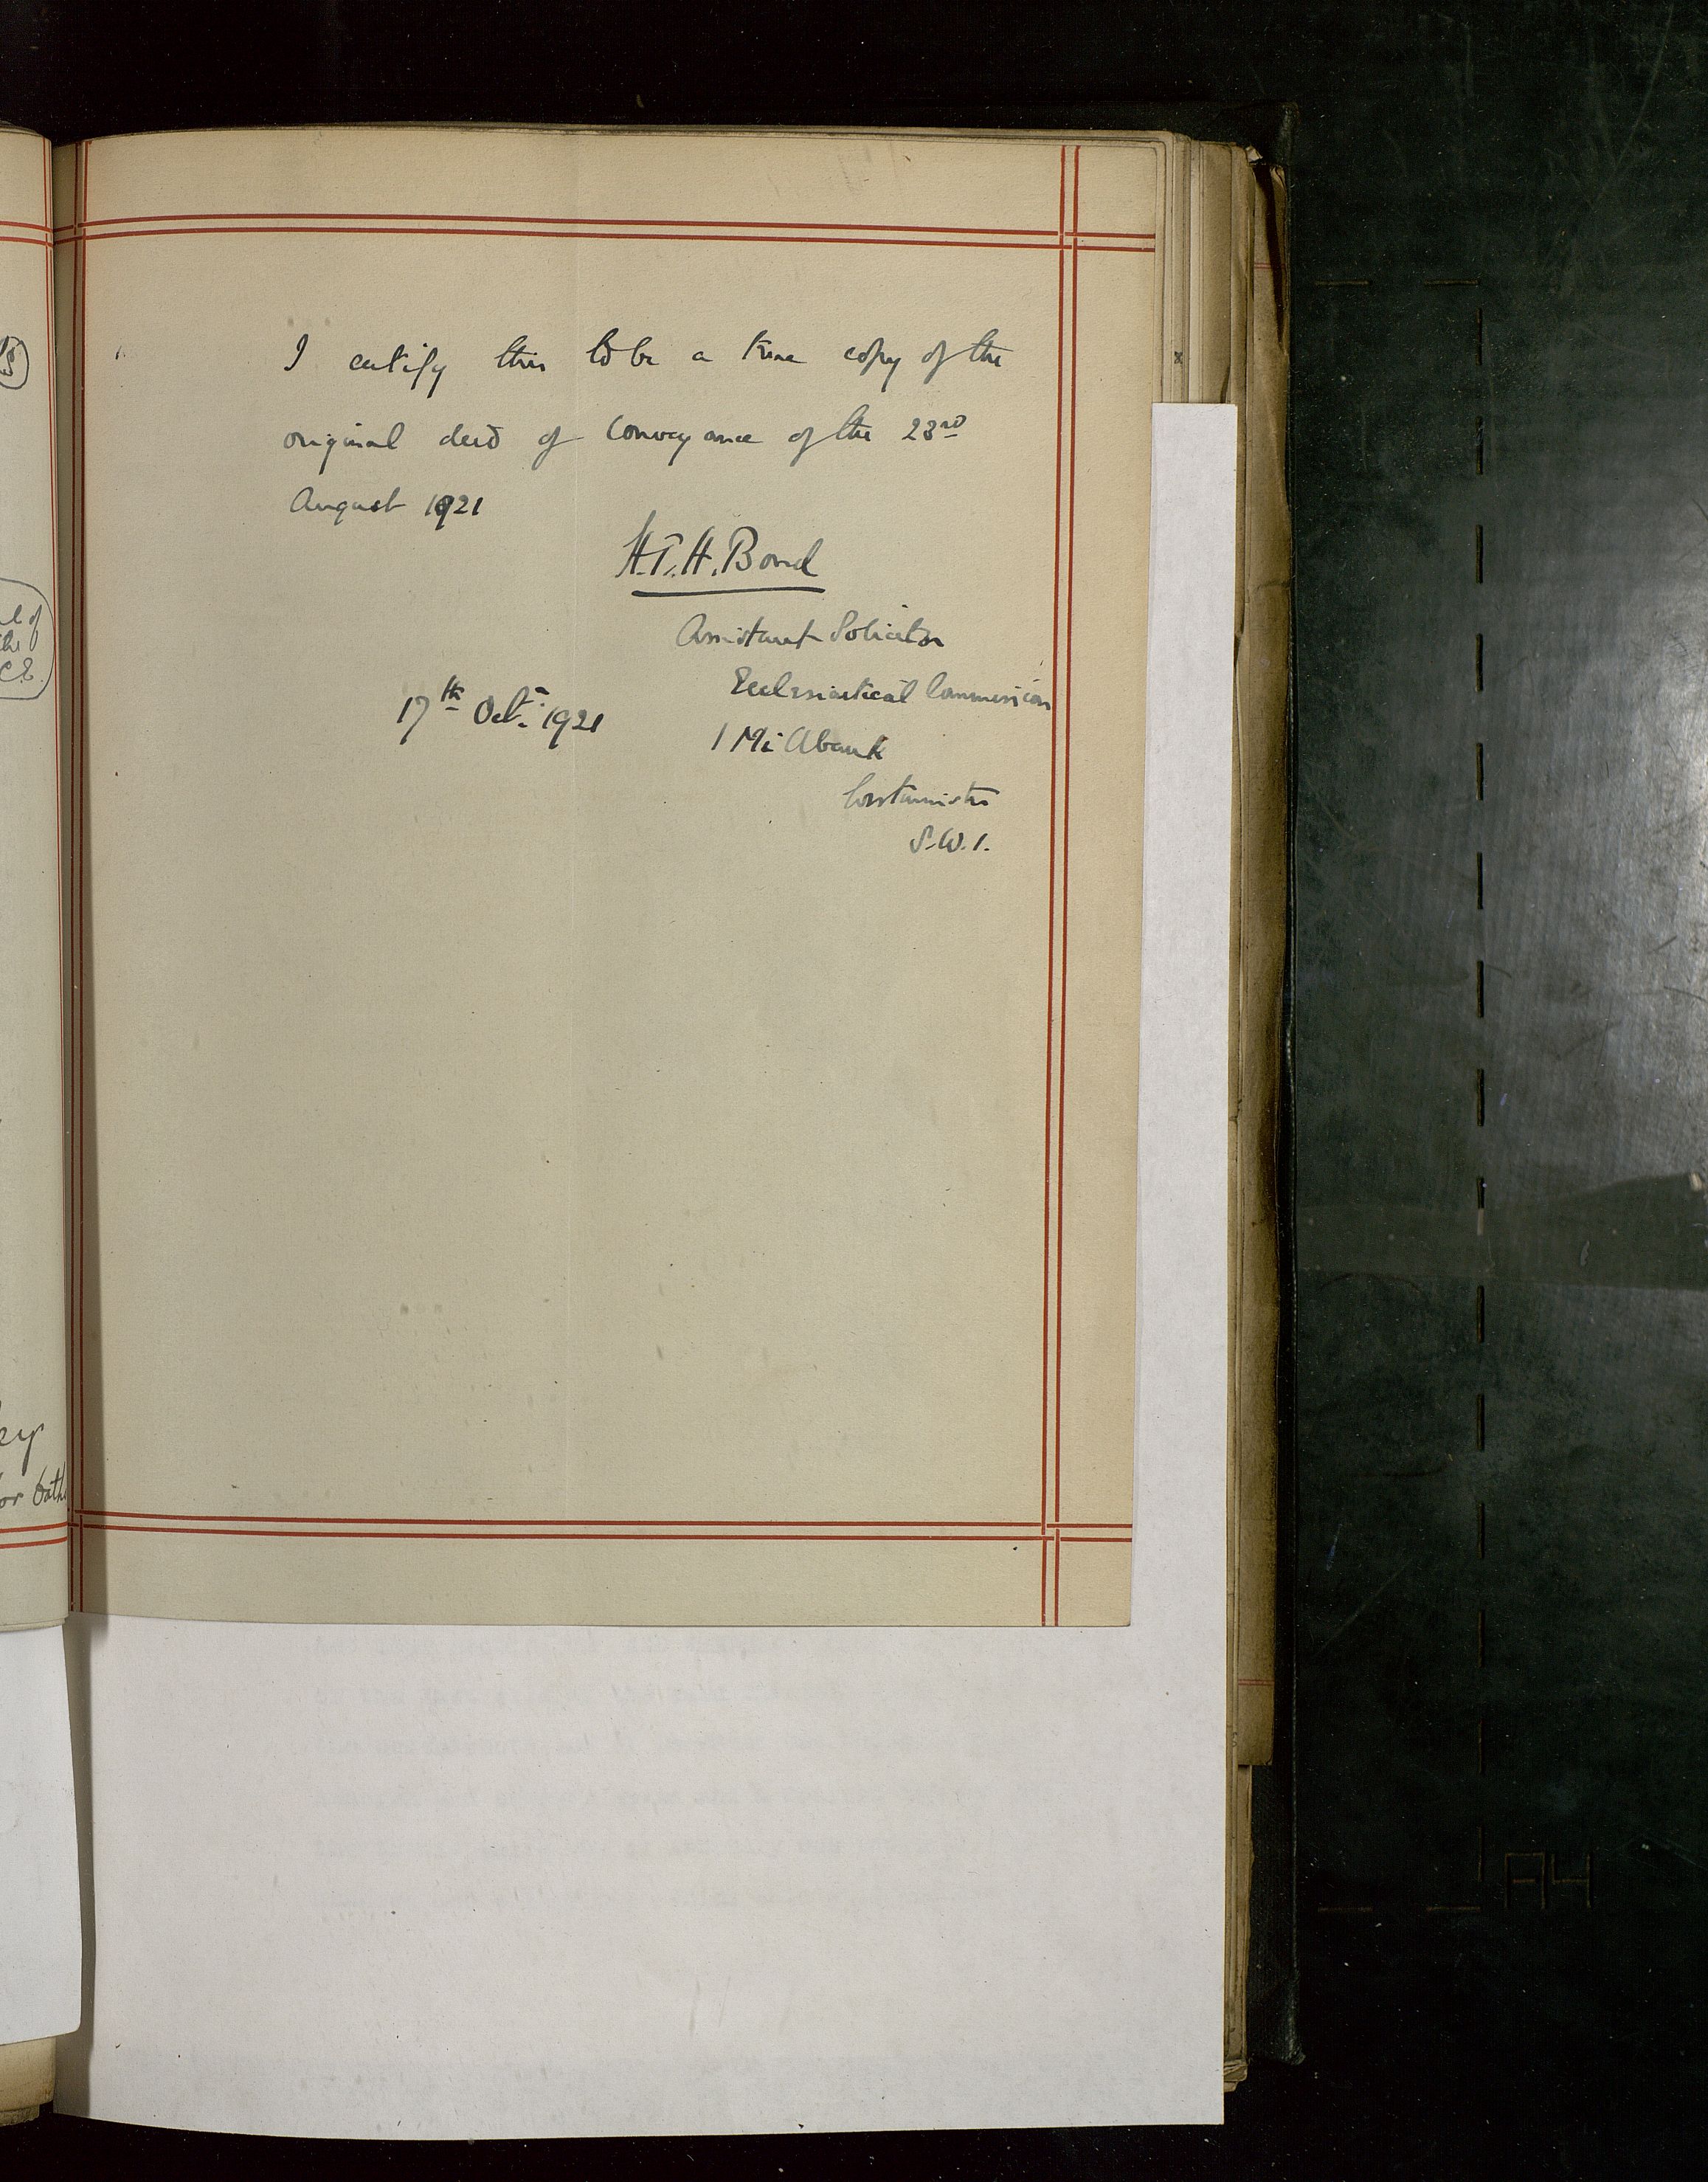 I certify this to be a true copy of the
original deed of Conveyance of the 23rd
August 1921
H.T.H. Bond
Assistant Solicitor
Ecclesiastical Commission
17th Oct. 1921
1 Millbank
Westminster
S.W.1.
l of
the
C.E.
key
for Oaths
A4